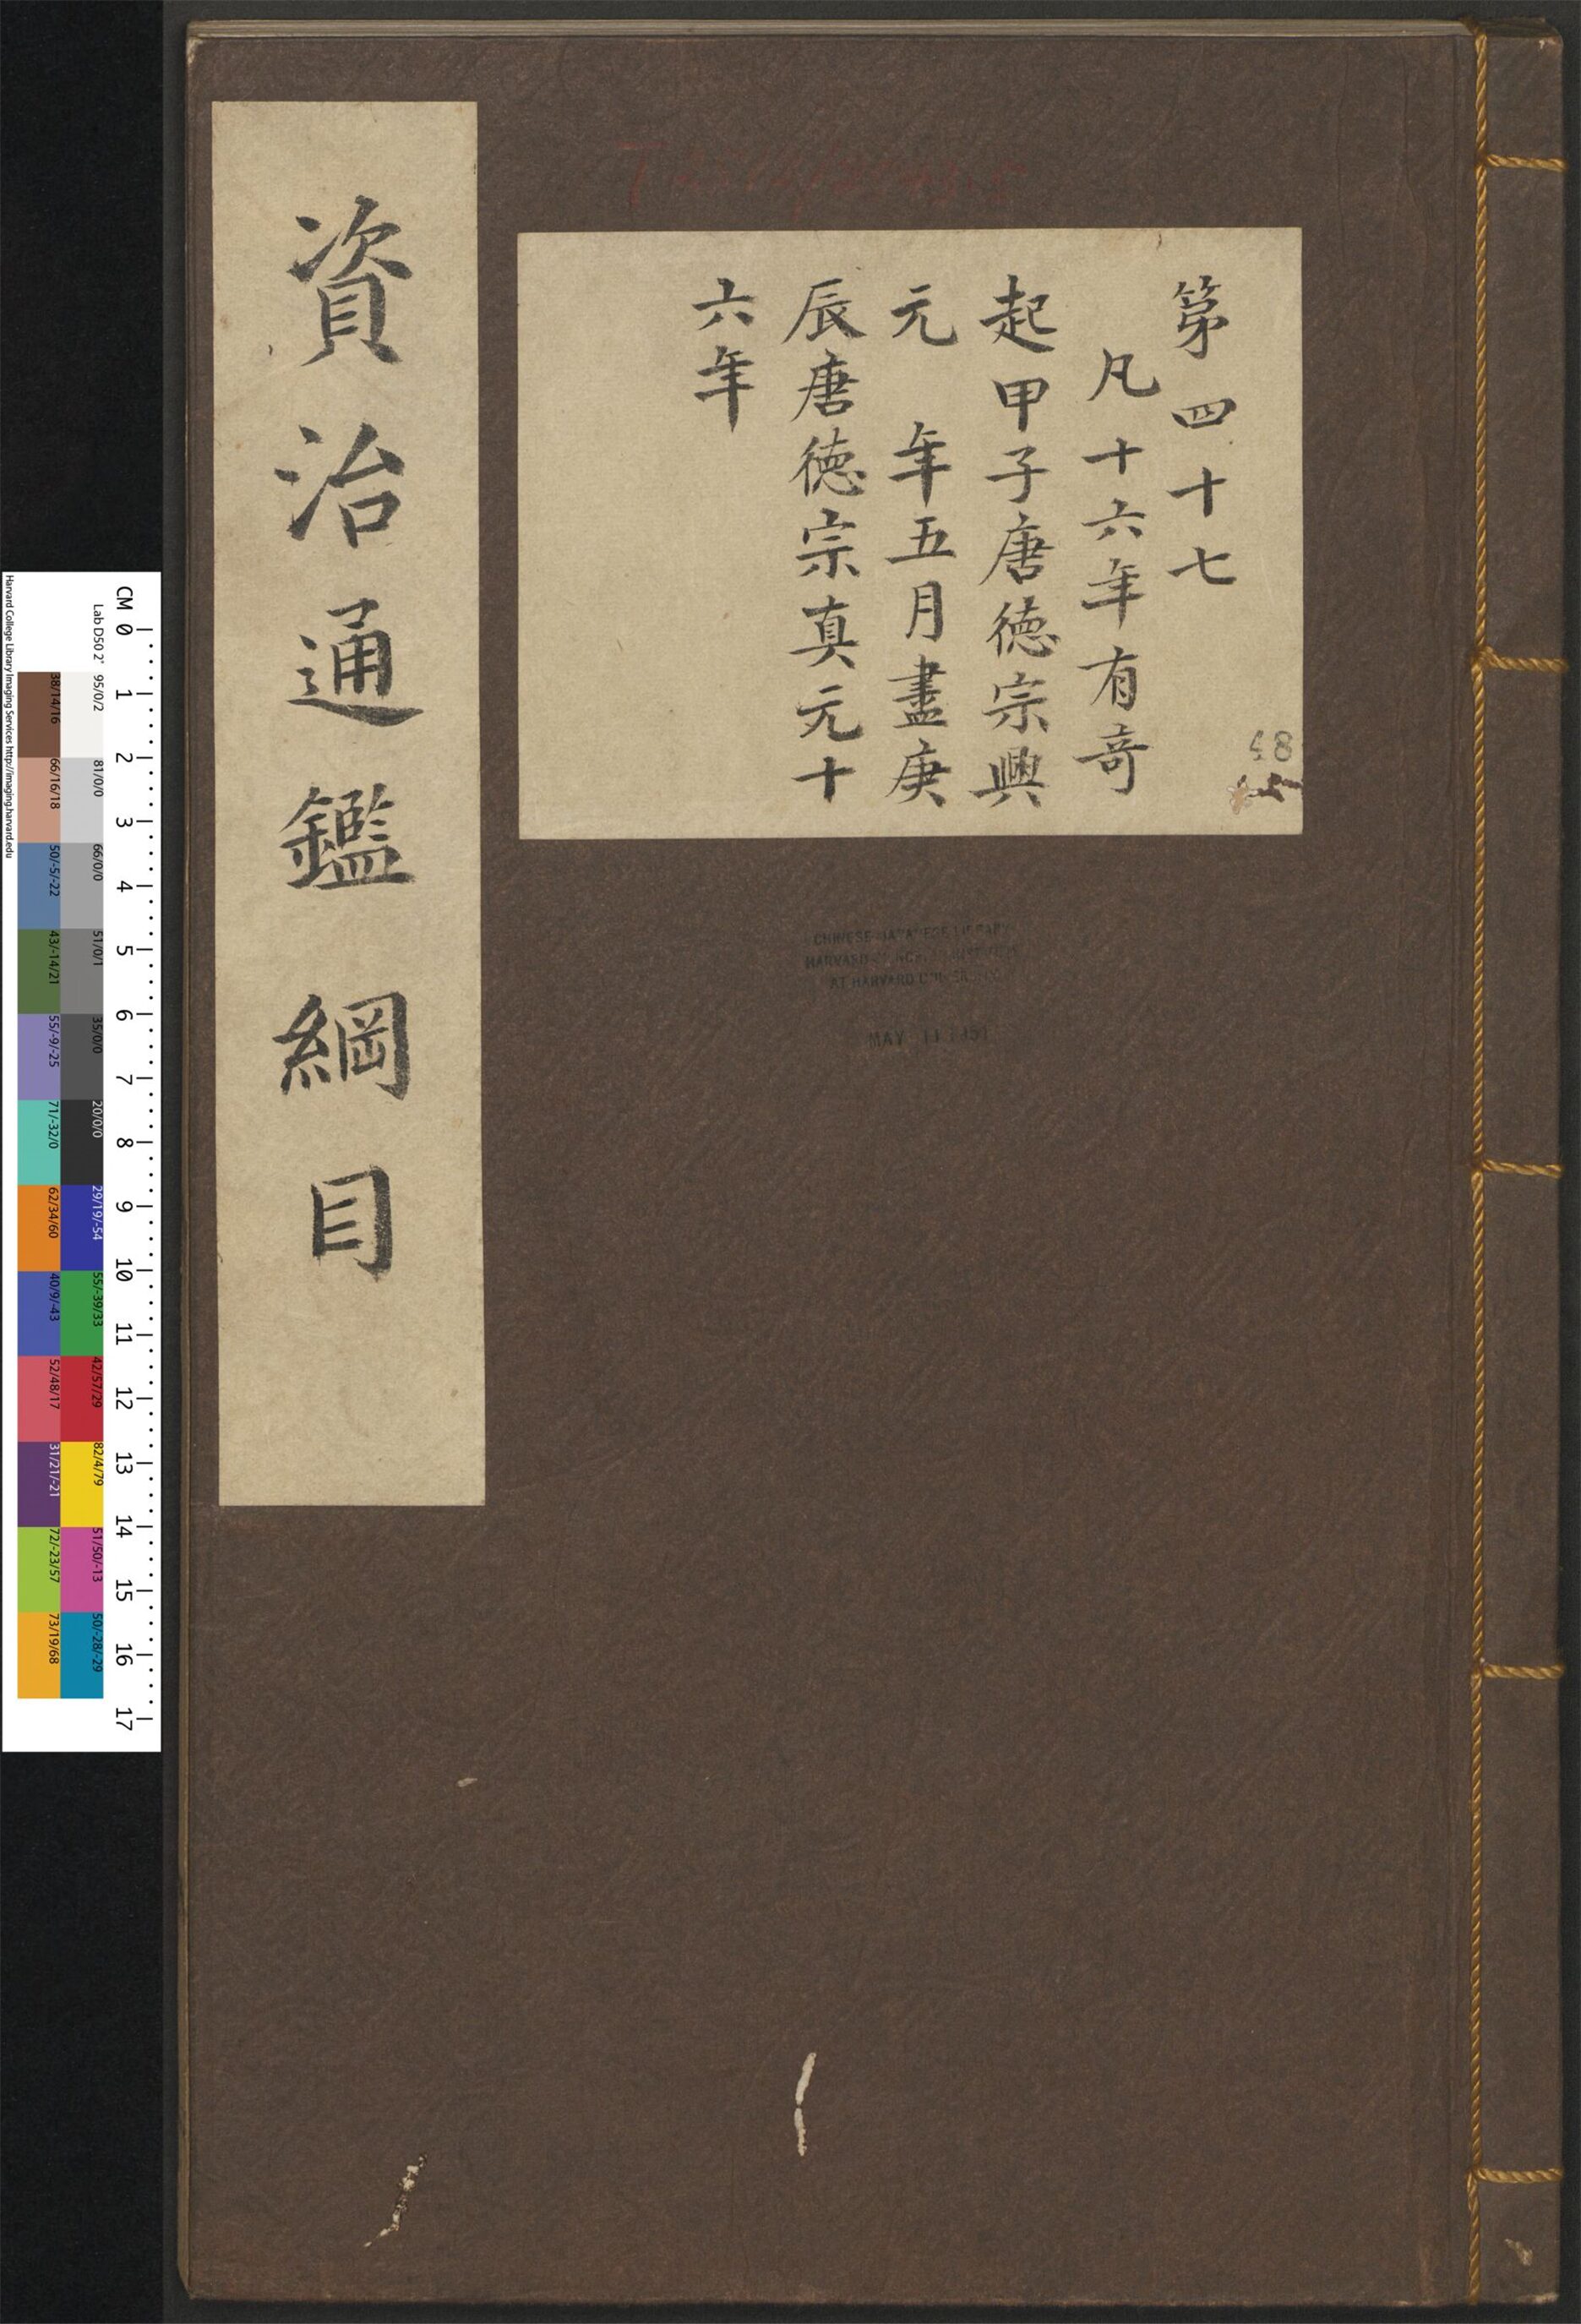 資治通鑑綱目
第四十七
凡十六年有竒
起甲子唐德宗興
元 年五月盡庚
辰唐德宗真元十
六年
48
CHINESE-JAPANESE LIBRARY
AT HARVARD
MAY 11
CM 0 1 2 3 4 5 6 7 8 9 10 11 12 13 14 15 16 17
Lab D50 2° 95/0/2 81/0/0 66/0/0 51/0/1 35/0/0 20/0/0 29/19/-54 55/-39/33 42/57/29 82/4/79 51/50/-13 50/-28/-29
38/14/16 66/16/18 50/-5/-22 43/-14/21 55/-9/-25 71/-32/0 62/34/60 40/9/-43 52/48/17 31/21/-21 72/-23/57 73/19/68
Harvard College Library Imaging Services http://imaging.harvard.edu